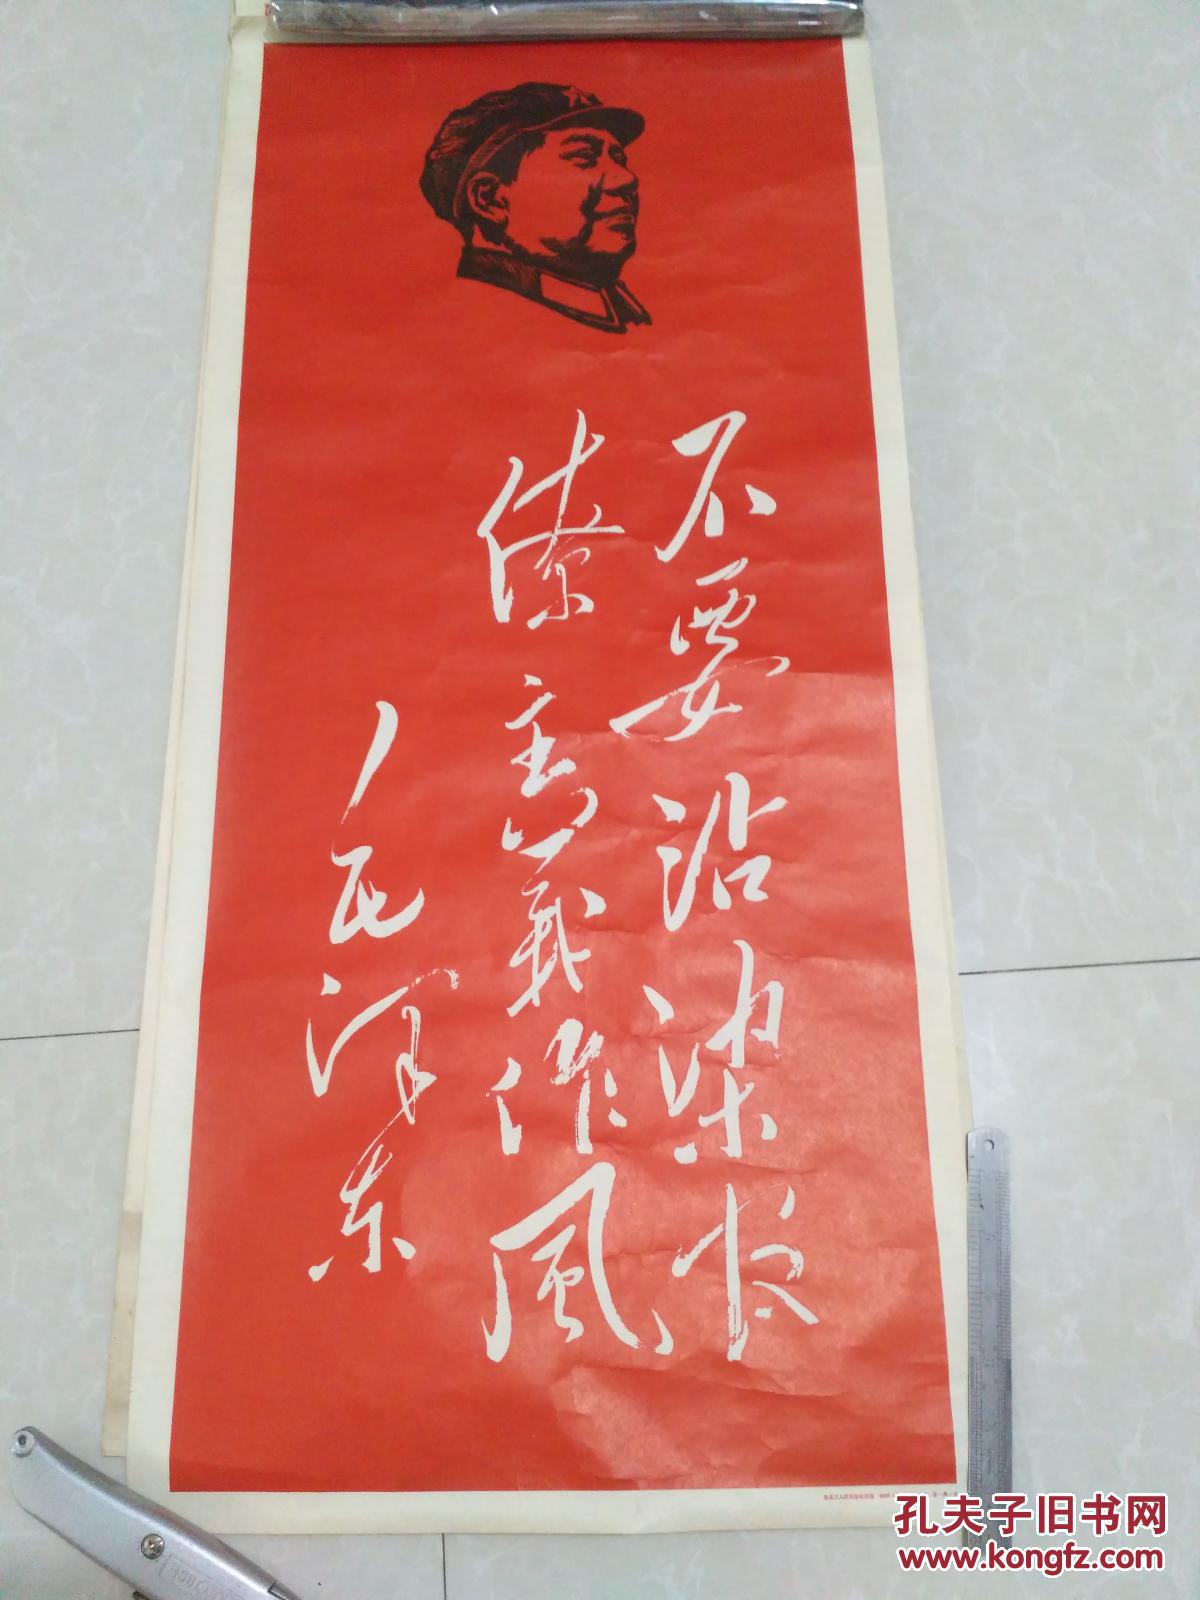 不要沾染官
僚主義作風
毛澤东
孔夫子旧书网
www.kongfz.com